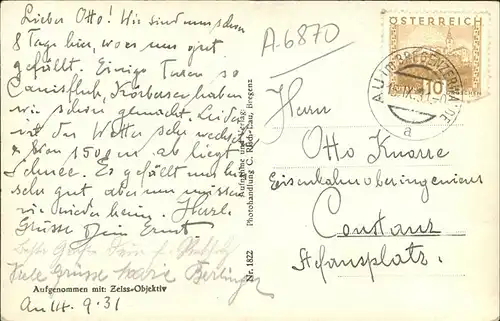 Lieber Otto! Wir sind nun schon
8 Tage hier, wo es uns gut
gefällt. Einige Turen so
Canisfluh, Körbersee haben
wir schon gemacht. Leider
ist das Wetter sehr wechselnd
Von 150 m ab liegt
Schnee. Es gefällt uns hier
sehr gut aber wir müssen
wieder heim. Herzl.
Grüsse Dein Ernst
Viele Grüsse Berlinger
Aufgenommen mit: Zeiss-Objektiv
Au 14. 9. 31
Nr. 1822
Aufnahme und Verlag
Photohandlung C. Risch-Lau, Bregenz
A-6870
ÖSTERREICH
10
AU im BREGENZERWALDE
a
Herrn
Otto Knorre
Eisenbahnoberingenieur
Constanz
Stefansplatz.